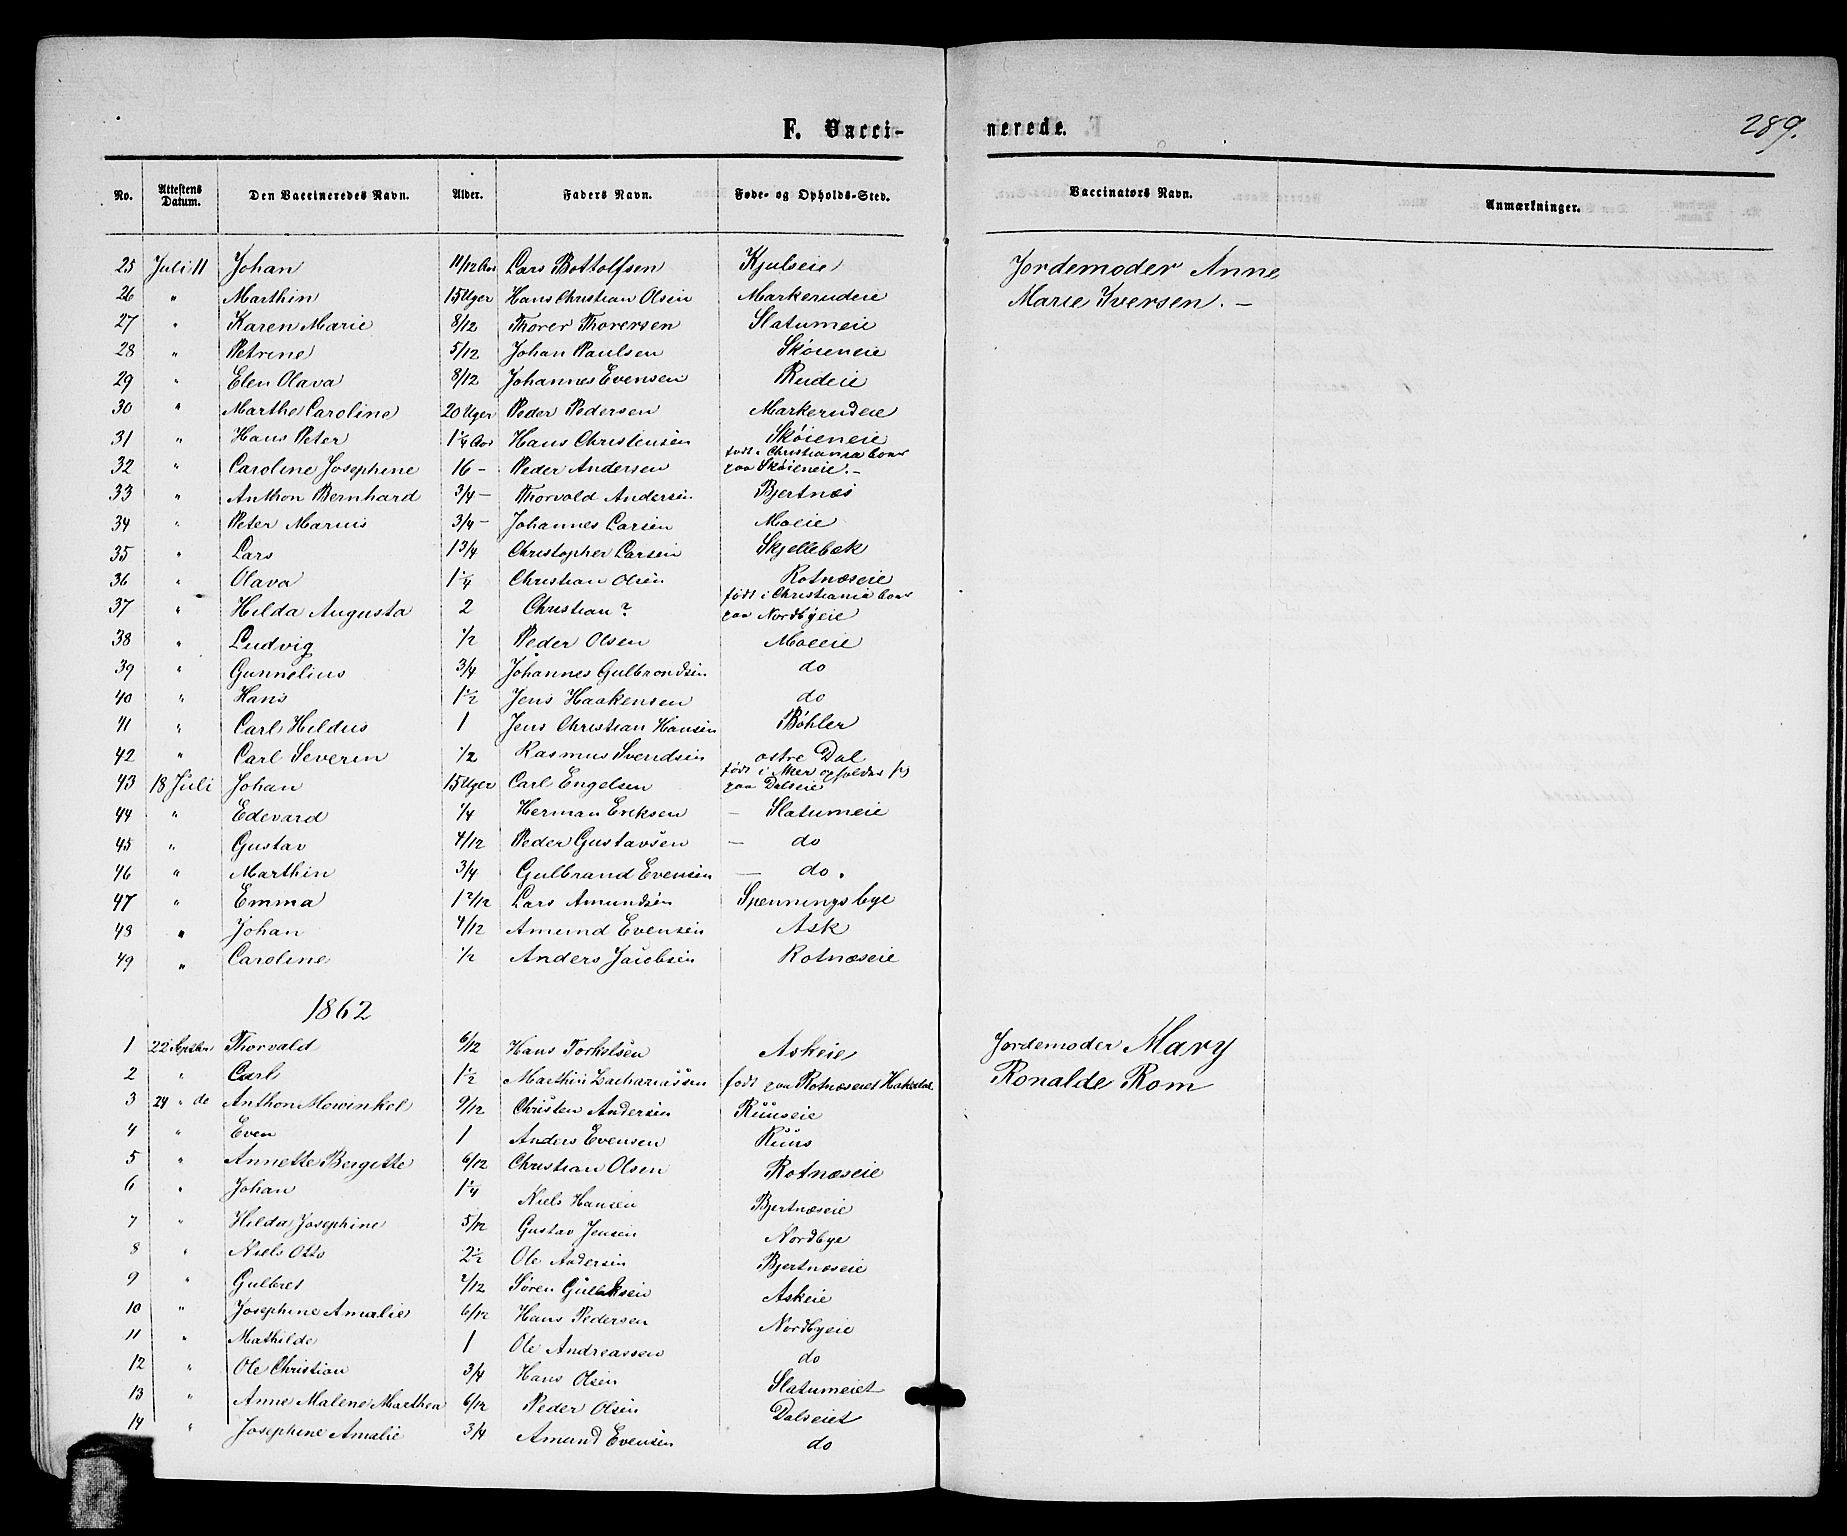 F. Vacci-
nerede.
289.
No. Attestens Datum. Den Vaccineredes Navn. Alder. Faders Navn. Føde- og Opholds-Sted. Vaccinators Navn. Anmærkninger.
25 Juli 11 Johan 11/12 Aar Lars Bottolfsen Kjulseie Jordemoder Anne
26 " Marthin 15 Uger Hans Christian Olsen Markerudeie Marie Iversen. –
27 " Karen Marie 8/12 Thorer Thorersen Slatumeie
28 " Petrine 5/12 Johan Paulsen Skøieneie
29 " Elen Olava 8/12 Johannes Evensen Rudeie
30 " Marthe Caroline 20 Uger Peder Pedersen Markerudeie
31 " Hans Peter 1¼ Aar Hans Christensen Skøieneie
32 " Caroline Josephine 16 – Peder Andersen født i Christiania boer paa Skøieneie. –
33 " Anthon Bernhard 3/4 – Thorvold Andersen Bjertnæs
34 " Peter Marius 3/4 – Johannes Larsen Moeie
35 " Lars 1 3/4 Christopher Larsen Skjellebæk
36 " Olava 1¼ Christian Olsen Rotnæseie
37 " Hilda Augusta 2 Christian? født i Christiania boer paa Nordbyeie
38 " Ludvig ½ Peder Olsen Moeeie
39 " Gunnelius 3/4 Johannes Gulbrandsen do
40 " Hans 1½ Jens Haakensen do
41 " Carl Hildus 1 Jens Christian Hansen Bøhler
42 " Carl Severin ½ Rasmus Svendsen østre Dal
43 18 Juli Johan 15 Uger Carl Engelsen født i Aker paa Dalseie
44 " Edevard ¼ Herman Eriksen – Slatumeie
45 " Gustav 4/12 Peder Gustavsen – do
46 " Marthin 3/4 Gulbrand Evensen – do.
47 " Emma 1 2/12 Lars Amundsen Spenningsbye
48 " Johan 4/12 Amund Evensen Ask
49 " Caroline ½ Anders Jacobsen Rotnæseie
1862
1 22 Septbr Thorvald 6/12 Hans Torkelsen Askeie Jordemoder Mary
2 " Carl 1½ Marthin Zachariassen født paa Rotnæseiet Hakedal Ronalde Rom
3 24 " de Anthon Mowinkel 9/12 Christen Andersen Ruuseie
4 " Even 1 Anders Evensen Ruus
5 " Annette Bergitte 6/12 Christian Olsen Rotnæseie
6 " Johan 1¼ Niels Hansen Bjertnæseie
7 " Hilda Josephine 5/12 Gustav Jensen Nordbye
8 " Niels Otto 2½ Ole Andersen Bjertnæseie
9 " Gulbret 7/12 Søren Gulleksen Askeie
10 " Josephine Amalie 6/12 Hans Pedersen Nordbyeie
11 " Mathilde 1 Ole Andreassen do
12 " Ole Christian 3/4 Hans Olsen Slatumeiet
13 " Anne Malene Marthea 6/12 Peder Olsen Dalseiet
14 " Josephine Amalie 3/4 Amund Evensen do